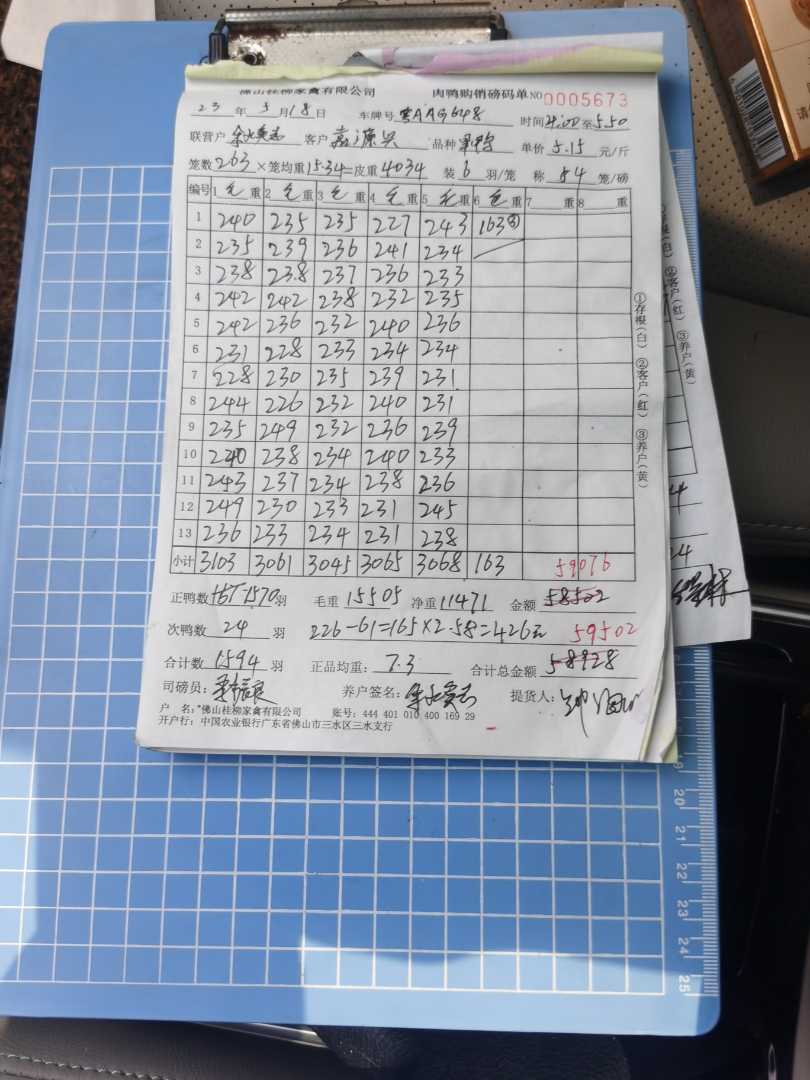 佛山桂柳家禽有限公司 肉鸭购销磅码单 NO 0005673
23 年 5 月 18 日 车牌号 粤AAG648 时间 4:00 至 5.50
联营户 客户 嘉源兴 品种 单价 5.15 元/斤
笼数 263 ×笼均重 15.34 =皮重 4034 装 6 羽/笼 称 54 笼/磅
编号 1 毛 重 2 毛 重 3 毛 重 4 毛 重 5 毛 重 6 毛 重 7 重 8 重
1 240 235 235 227 243 163③
2 235 239 236 241 234
3 238 238 237 236 233
4 242 242 238 232 235
5 242 236 232 240 236
6 231 228 233 234 234
7 228 230 235 239 231
8 244 226 232 240 231
9 235 249 232 236 239
10 240 238 234 240 233
11 243 237 234 238 236
12 249 230 233 231 245
13 236 233 234 231 238
小计 3103 3061 3045 3065 3068 163 59076
正鸭数 1570 羽 毛重 15505 净重 11471 金额 58502
次鸭数 24 羽 226-61=165×2.58=426元 59502
合计数 1594 羽 正品均重: 7.3 合计总金额 58928
司磅员: 养户签名: 提货人:
户 名: 佛山桂柳家禽有限公司 账号: 444 401 010 400 169 29
开户行: 中国农业银行广东省佛山市三水区三水支行
①存根(白) ②客户(红) ③养户(黄)
②客户(红) ③养户(黄)
19
20
21
22
23
24
25